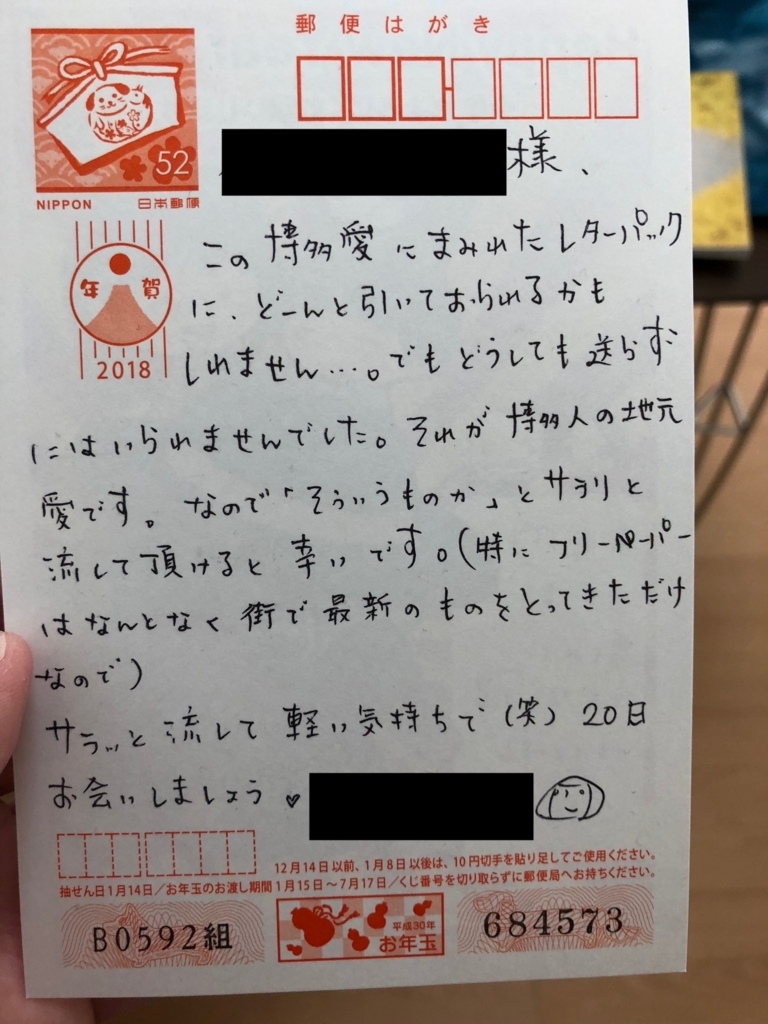 郵便はがき
52
NIPPON 日本郵便
年賀
2018
様、
この博多愛にまみれたレターパック
に、どーんと引いておられるかも
しれません…。でもどうしても送らず
にはいられませんでした。それが博多人の地元
愛です。なので「そういうものか」とサラリと
流して頂けると幸いです。(特にフリーペーパー
はなんとなく街で最新のものをとってきただけ
なので)
サラッと流して軽い気持ちで(笑)20日
お会いしましょう♥
12月14日以前、1月8日以後は、10円切手を貼り足してご使用ください。
抽せん日1月14日/お年玉のお渡し期間1月15日～7月17日/くじ番号を切り取らずに郵便局へお持ちください。
B0592組
平成30年
お年玉
684573